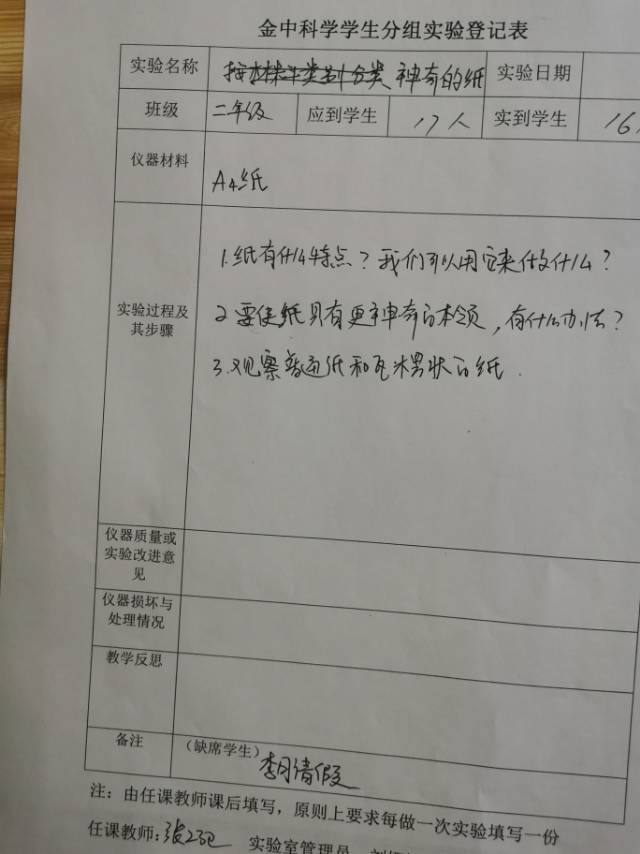 金中科学学生分组实验登记表
实验名称 神奇的纸 实验日期
班级 二年级 应到学生 17人 实到学生 16
仪器材料 A4纸
1.纸有什么特点？我们可以用它来做什么？
实验过程及其步骤
2.要使纸具有更神奇的本领，有什么办法？
3.观察普通纸和瓦楞状的纸.
仪器质量或
实验改进意
见
仪器损坏与
处理情况
教学反思
备注 （缺席学生）
李月请假
注：由任课教师课后填写，原则上要求每做一次实验填写一份
任课教师： 实验室管理员